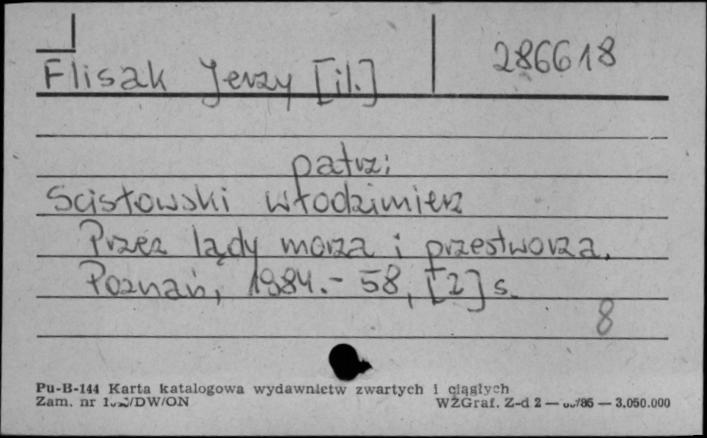 Flisak Jerzy [il.] 286618
patrz:
Scisłowski Włodzimierz
Przez lądy morza i przestworza.
Poznań, 1984.- 58, [2] s.
8
Pu-B-144 Karta katalogowa wydawnictw zwartych i ciągłych
Zam. nr /DW/ON WZGraf. Z-d 2 — /86 — 3.050.000